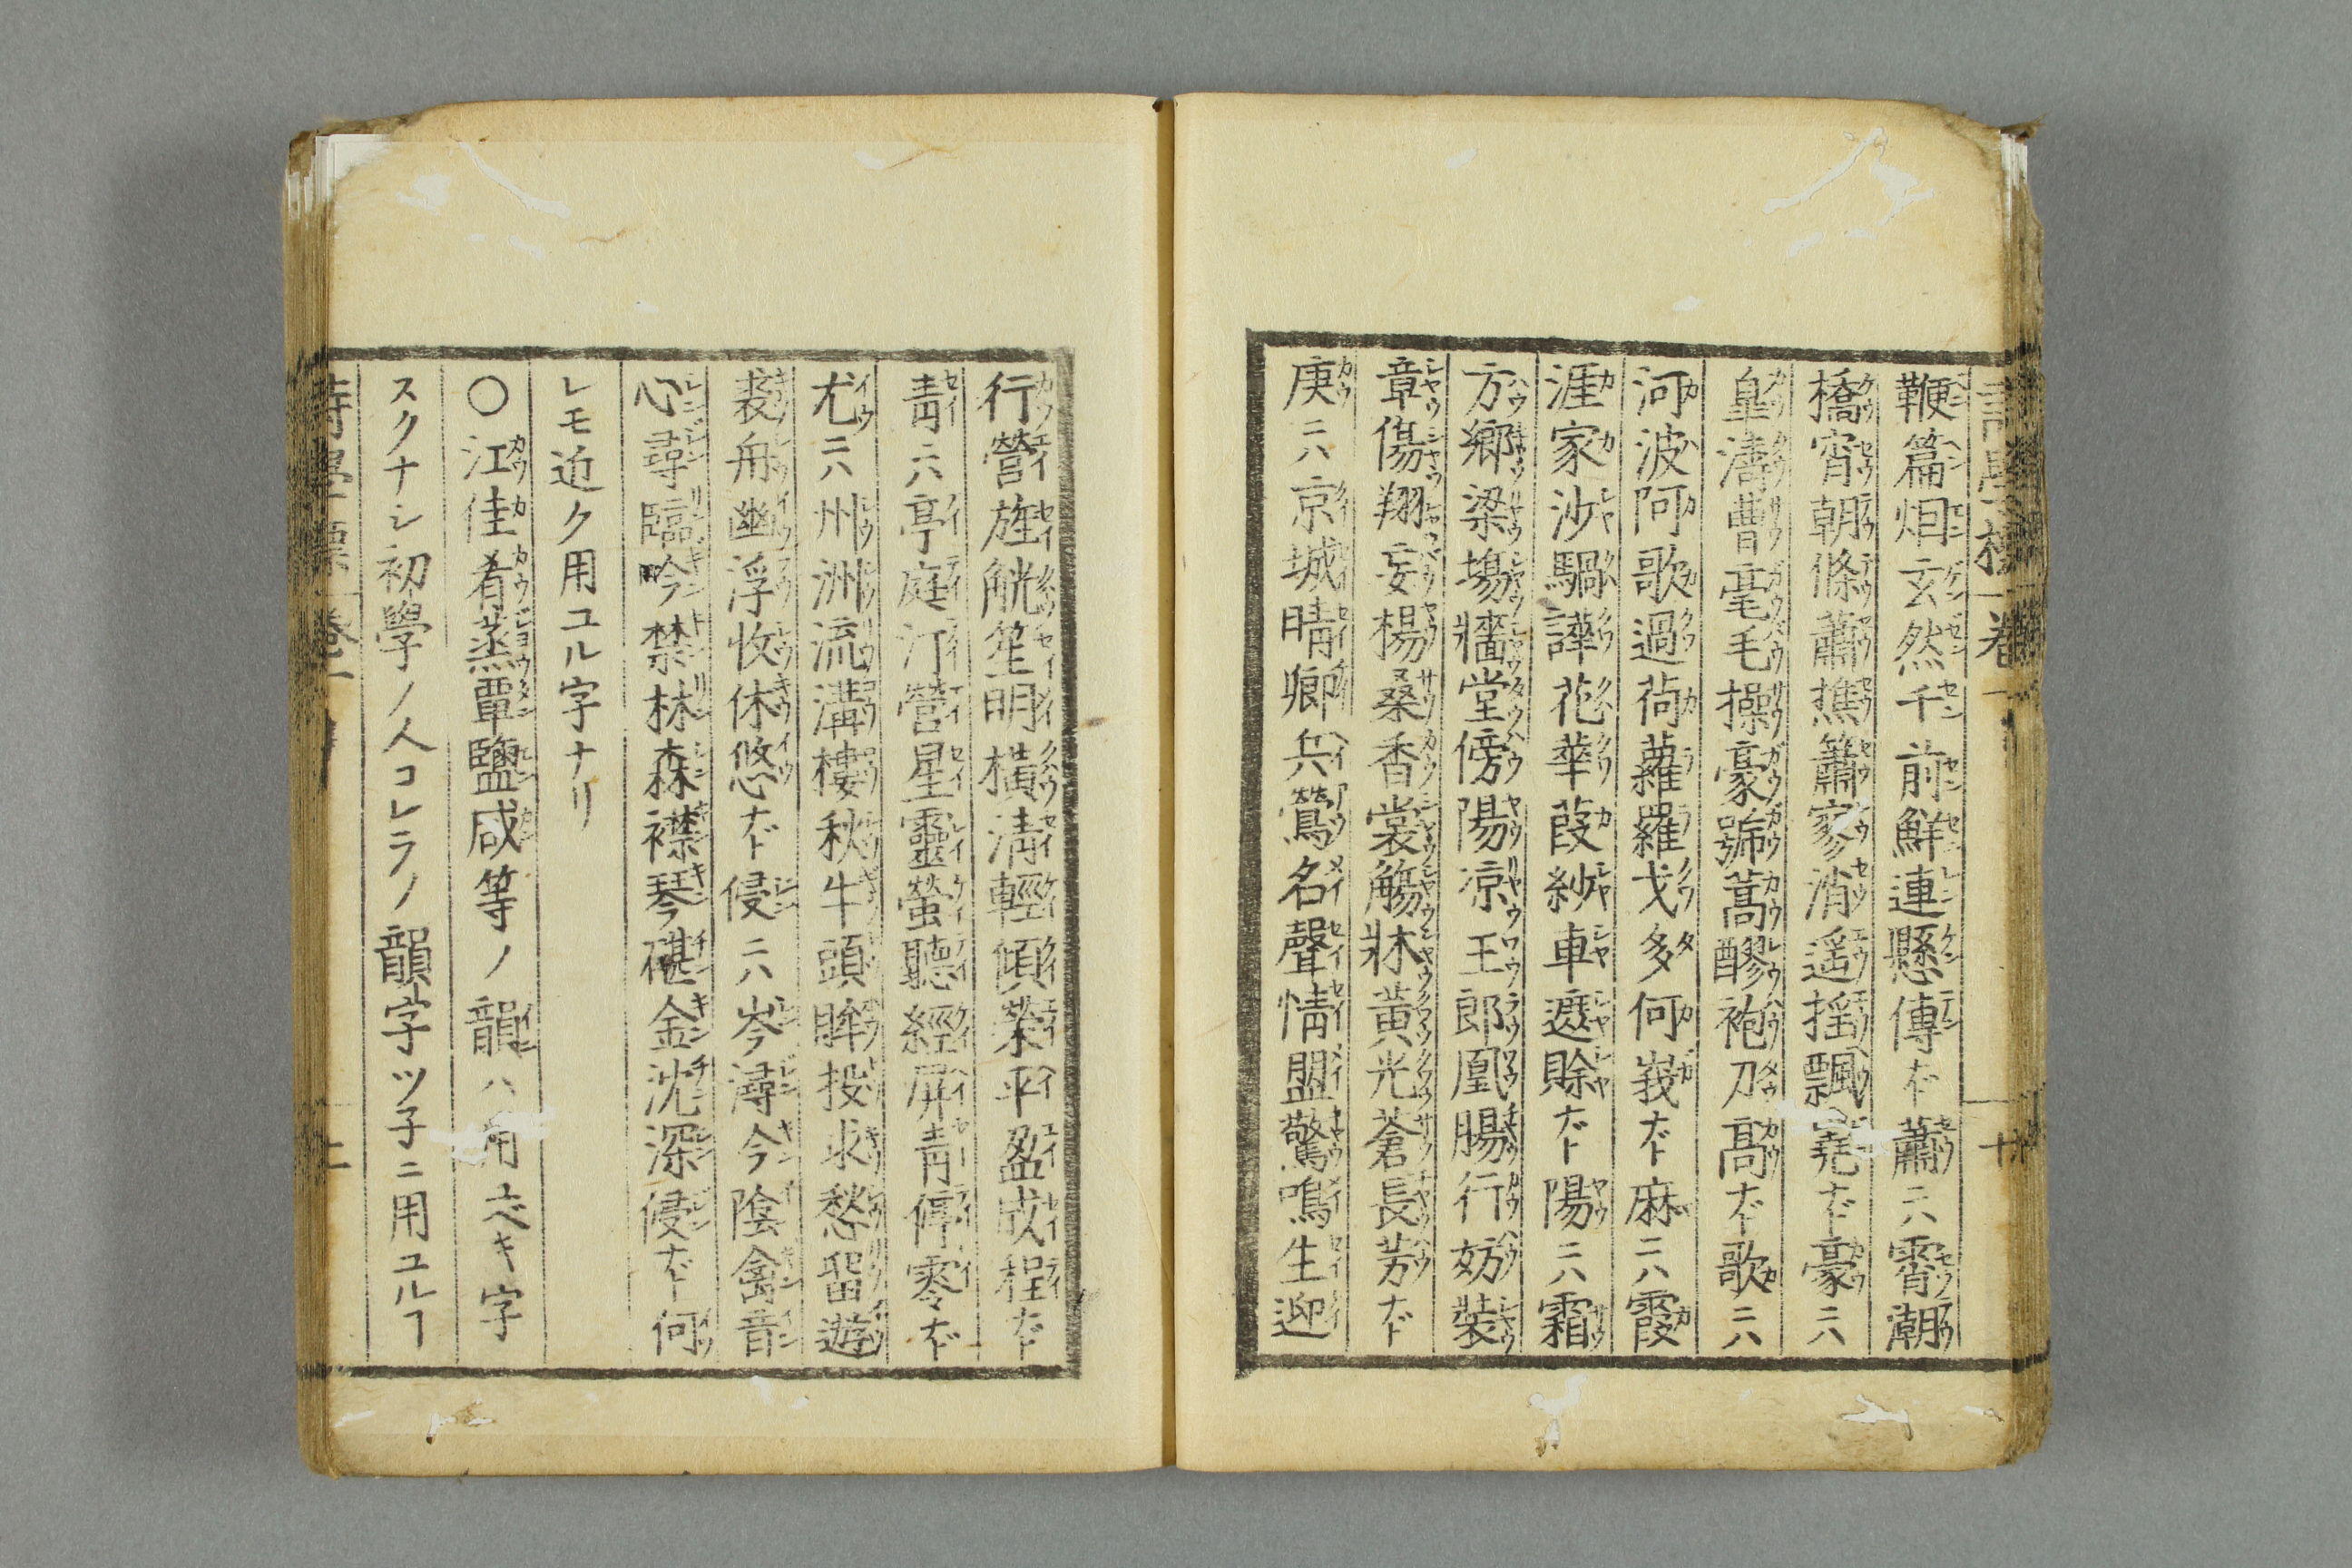 鞭篇烟玄然千前鮮連懸傳ナド蕭ニハ霄潮
橋宵朝條蕭樵簫寥消遥揺飄堯ナド豪ニハ
皐濤曹毫毛操豪號蒿醪袍刀高ナド歌ニハ
河波阿歌過荷蘿羅戈多何峩ナド麻ニハ霞
涯家沙騧譁花華葭紗車遮賖ナド陽ニハ霜
方郷梁塲牆堂傍陽凉王郎凰腸行妨裝
章傷翔妄楊桑香裳觴牀黄光蒼長芳ナド
庚ニハ京城晴卿兵鶯名聲情盟驚鳴生迎
行營旌觥笙明横清輕傾榮平盈成程ナド
青ニハ亭庭汀營星靈螢聽經屏青停零ナド
尤ニハ州洲流溝樓秋牛頭眸投求愁留遊
裘舟幽浮收休悠ナド侵ニハ岑潯今陰禽音
心尋臨吟禁林森襟琴碪金沈深侵ナド何
レモ近ク用ユル字ナリ
〇江佳肴蒸覃鹽咸等ノ韻ハ用ベキ字
スクナシ初學ノ人コレラノ韻字ツ子ニ用ユルヿ